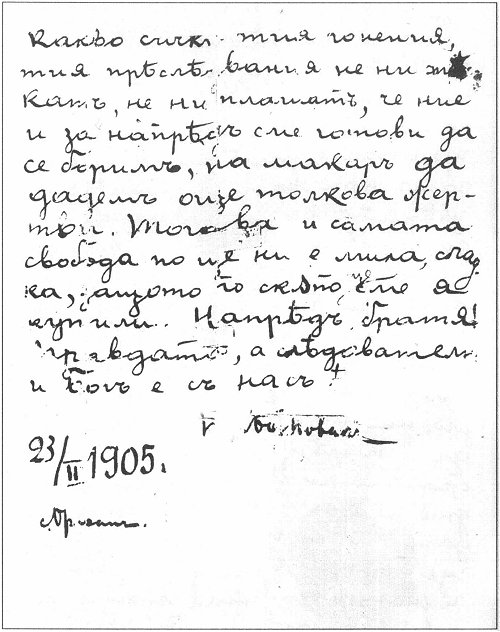 Какво сички тия гонения,
тия прѣслѣдвания не ни
катъ, не ни плашатъ, че ние
и за напрѣдъ сме готови да
се боримъ, па макаръ да
дадемъ още толкова жер-
тви. Тогова и самата
свобода по ще ни е мила, слад
ка, защото по скѫпо, ще сме я
купили. Напрѣдъ, братя!
правдата, а слѣдователн
и Богъ е съ насъ!
23/II 1905.